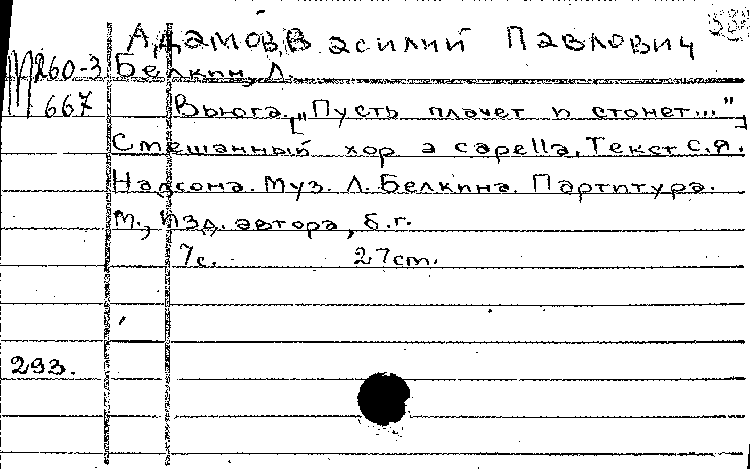 Адамов, Василий Павлович
М 260-3 Белкин, Л.
667 Вьюга. ["Пусть плачет и стонет..."]
Смешанный хор a capella. Текст С.Я.
Надсона. Муз. Л. Белкина. Партитура.
М., Изд. автора, б.г.
7с. 27см.
293.